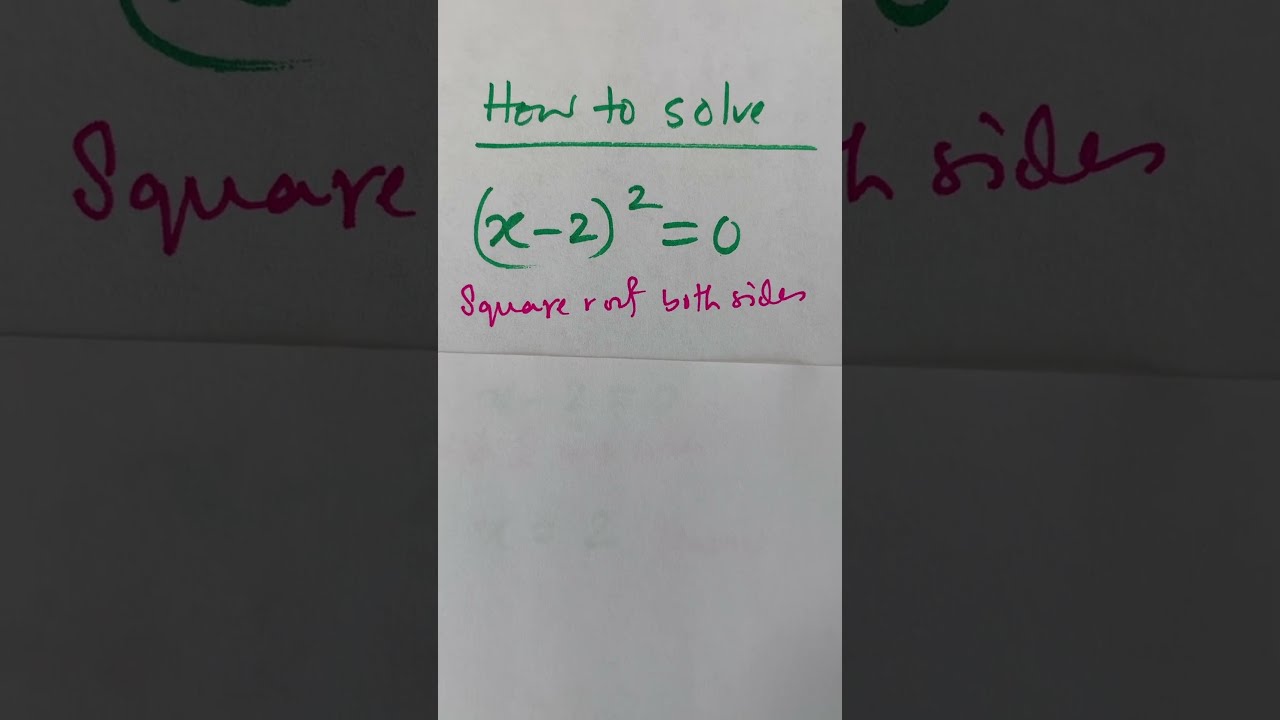 How to solve
(x-2)² = 0
Square root both sides
x - 2 = 0
x = 2